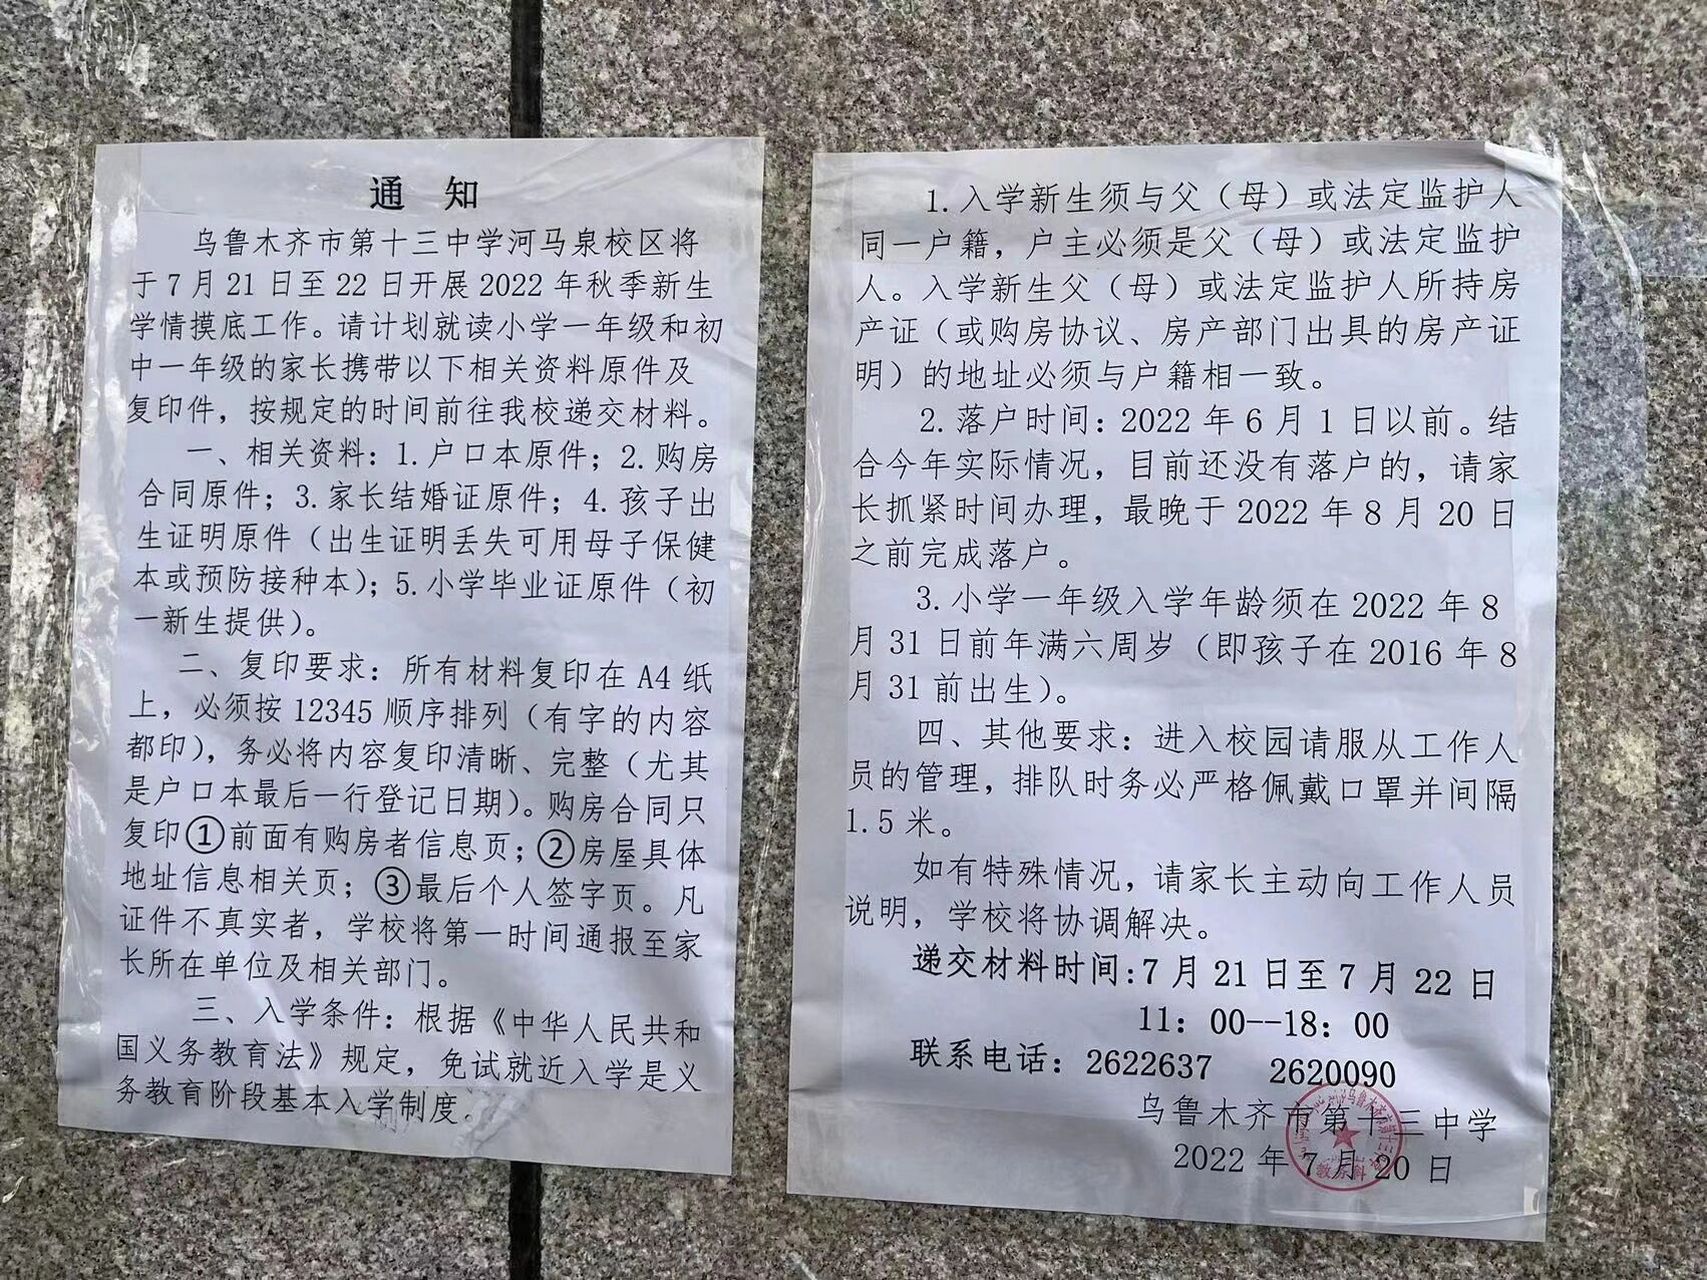 通 知
乌鲁木齐市第十三中学河马泉校区将
于7月21日至22日开展2022年秋季新生
学情摸底工作。请计划就读小学一年级和初
中一年级的家长携带以下相关资料原件及
复印件，按规定的时间前往我校递交材料。
一、相关资料：1.户口本原件；2.购房
合同原件；3.家长结婚证原件；4.孩子出
生证明原件（出生证明丢失可用母子保健
本或预防接种本）；5.小学毕业证原件（初
一新生提供）。
二、复印要求：所有材料复印在A4纸
上，必须按12345顺序排列（有字的内容
都印），务必将内容复印清晰、完整（尤其
是户口本最后一行登记日期）。购房合同只
复印①前面有购房者信息页；②房屋具体
地址信息相关页；③最后个人签字页。凡
证件不真实者，学校将第一时间通报至家
长所在单位及相关部门。
三、入学条件：根据《中华人民共和
国义务教育法》规定，免试就近入学是义
务教育阶段基本入学制度。
1.入学新生须与父（母）或法定监护人
同一户籍，户主必须是父（母）或法定监护
人。入学新生父（母）或法定监护人所持房
产证（或购房协议、房产部门出具的房产证
明）的地址必须与户籍相一致。
2.落户时间：2022年6月1日以前。结
合今年实际情况，目前还没有落户的，请家
长抓紧时间办理，最晚于2022年8月20日
之前完成落户。
3.小学一年级入学年龄须在2022年8
月31日前年满六周岁（即孩子在2016年8
月31前出生）。
四、其他要求：进入校园请服从工作人
员的管理，排队时务必严格佩戴口罩并间隔
1.5米。
如有特殊情况，请家长主动向工作人员
说明，学校将协调解决。
递交材料时间：7月21日至7月22日
11：00--18：00
联系电话：2622637 2620090
乌鲁木齐市第十三中学
2022年7月20日